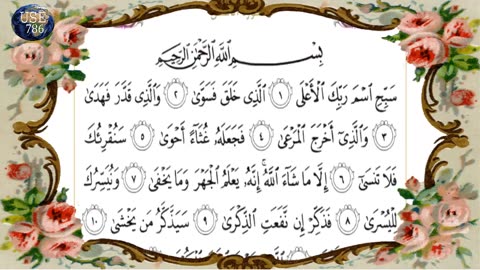 USE
786
بِسْمِ اللَّهِ الرَّحْمَٰنِ الرَّحِيمِ
سَبِّحِ اسْمَ رَبِّكَ الْأَعْلَى ﴿١﴾ الَّذِي خَلَقَ فَسَوَّىٰ ﴿٢﴾ وَالَّذِي قَدَّرَ فَهَدَىٰ
﴿٣﴾ وَالَّذِي أَخْرَجَ الْمَرْعَىٰ ﴿٤﴾ فَجَعَلَهُ غُثَاءً أَحْوَىٰ ﴿٥﴾ سَنُقْرِئُكَ
فَلَا تَنسَىٰ ﴿٦﴾ إِلَّا مَا شَاءَ اللَّهُ ۚ إِنَّهُ يَعْلَمُ الْجَهْرَ وَمَا يَخْفَىٰ ﴿٧﴾ وَنُيَسِّرُكَ
لِلْيُسْرَىٰ ﴿٨﴾ فَذَكِّرْ إِن نَّفَعَتِ الذِّكْرَىٰ ﴿٩﴾ سَيَذَّكَّرُ مَن يَخْشَىٰ ﴿١٠﴾